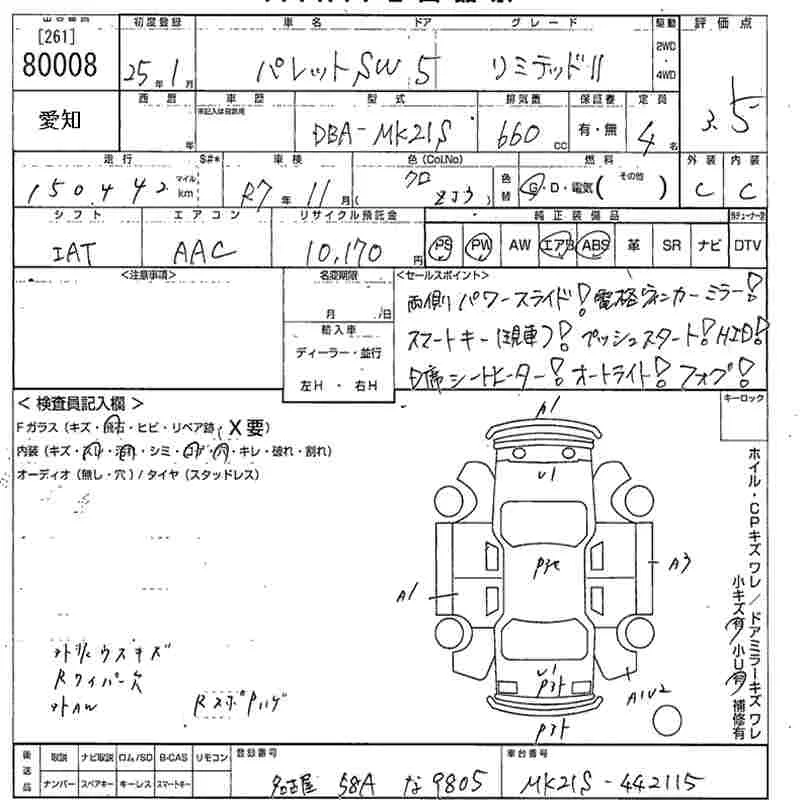 [261]
80008
愛知
初度登録 車名 ドア グレード 駆動 評価点
25年1月 パレットSW 5 リミテッドII 2WD・4WD 3.5
西暦 車歴 型式 排気量 保証書 定員
未記入は自家用
年 DBA-MK21S 660cc 有・無 4名
走行 S#* 車検 色(Col.No) 燃料 外装 内装
150,442 マイル km R7年11月 クロ ZJ3 色替 G・D・電気(その他) C C
シフト エアコン リサイクル預託金 純正装備品
IAT AAC 10,170円 PS PW AW エアB ABS 革 SR ナビ DTV
<注意事項> 名変期限 <セールスポイント>
月 日
輸入車
ディーラー・並行
左H・右H
両側パワースライド! 電格ウィンカーミラー!
スマートキー(現車)! プッシュスタート! HID!
シートヒーター! オートライト! フォグ!
<検査員記入欄> キーロック
Fガラス(キズ・飛石・ヒビ・リペア跡・X要)
内装(キズ・スレ・汚れ・シミ・コゲ・穴・キレ・破れ・割れ)
オーディオ(無し・穴)/タイヤ(スタッドレス)
A1
U1
P3セ
A3
A1
U1
P3ト
A1U2
P3ト
ホイル・CPキズワレ/ドアミラーキズワレ
小キズ有 小U有 補修有
ウスキズ
Rワイパー欠
外AW
RスポPハゲ
後送品 取説 ナビ取説 ロム/SD B-CAS リモコン
ナンバー スペアキー キーレス スマートキー
登録番号 名古屋 58A な 9805
車台番号 MK21S-442115